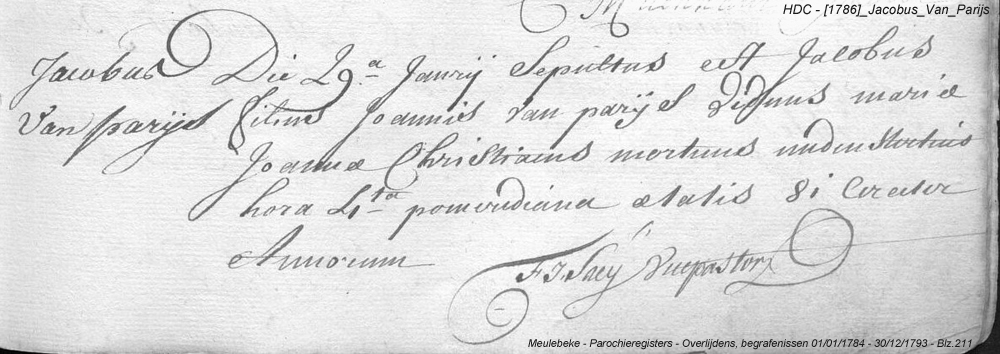 HDC - [1786]_Jacobus_Van_Parijs
Jacobus Die 29a Janrij Sepultus est Jacobus
Van parijs filius Joannis Van parijs Viduus mariæ
Joannæ Christiaens mortuus nudiustertius
hora 4ta pomeridiana ætatis 81 Circiter
Annorum
Vicepastor
Meulebeke - Parochieregisters - Overlijdens, begrafenissen 01/01/1784 - 30/12/1793 - Blz.211